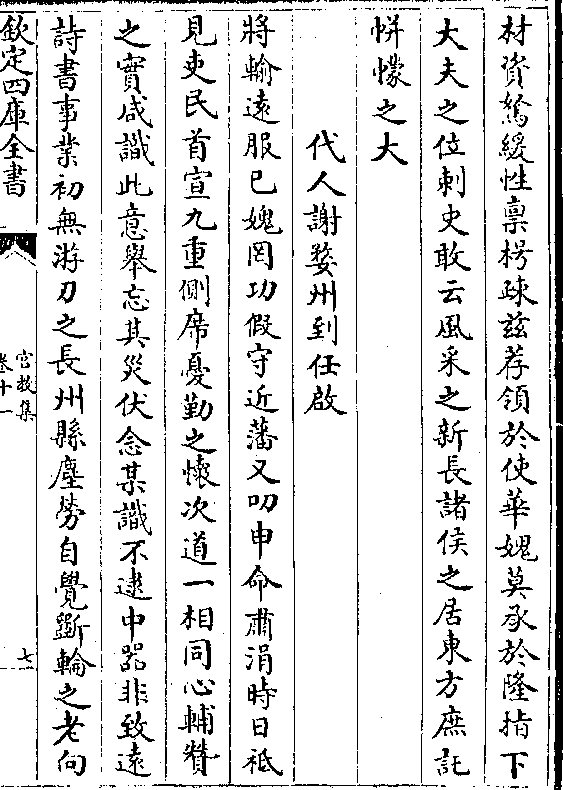 材資駑緩性稟樗疎兹荐領於使華媿莫承於隆指下
大夫之位刺史敢云風采之新長諸侯之居東方庶託
帡幪之大
代人謝婺州到任啟
將輸遠服已媿罔功假守近藩又叨申命肅涓時日祗
見吏民首宣九重側席憂勤之懷次道一相同心輔賛
之實咸識此意舉忘其災伏念某識不逮中器非致遠
詩書事業初無游刃之長州縣塵勞自覺斲輪之老向
欽定四庫全書
宫教集
卷十一
七